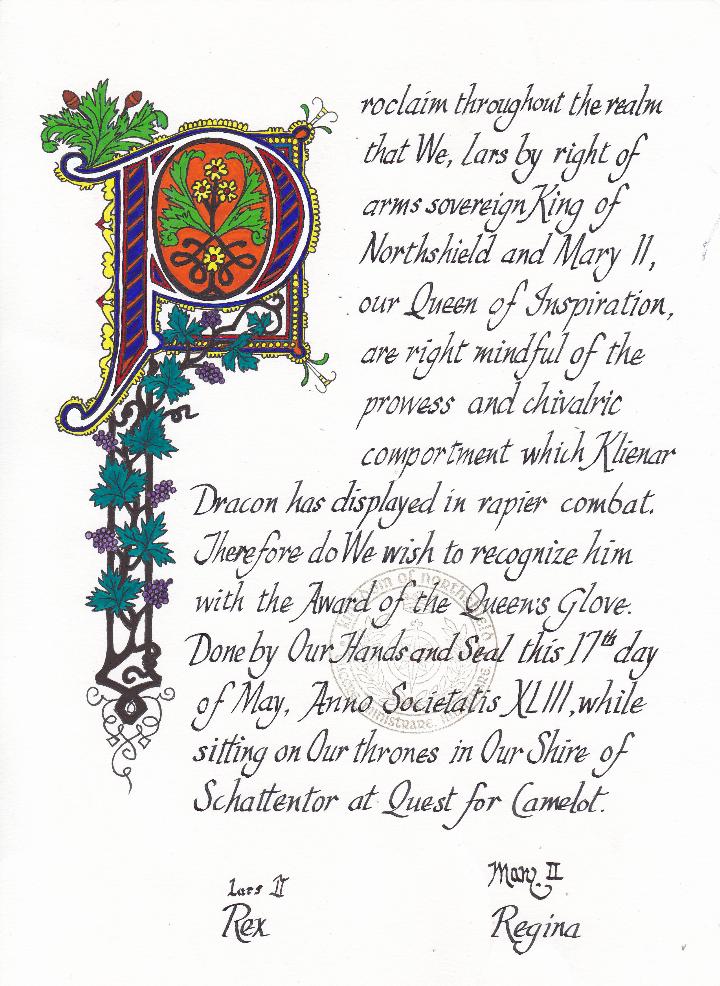 Proclaim throughout the realm
that We, Lars by right of
arms sovereign King of
Northshield and Mary II,
our Queen of Inspiration,
are right mindful of the
prowess and chivalric
comportment which Klienar
Dracon has displayed in rapier combat.
Therefore do We wish to recognize him
with the Award of the Queen's Glove.
Done by Our Hands and Seal this 17th day
of May, Anno Societatis XLIII, while
sitting on Our thrones in Our Shire of
Schattentor at Quest for Camelot.
Lars II
Rex
Mary II
Regina
KINGDOM OF NORTHSHIELD